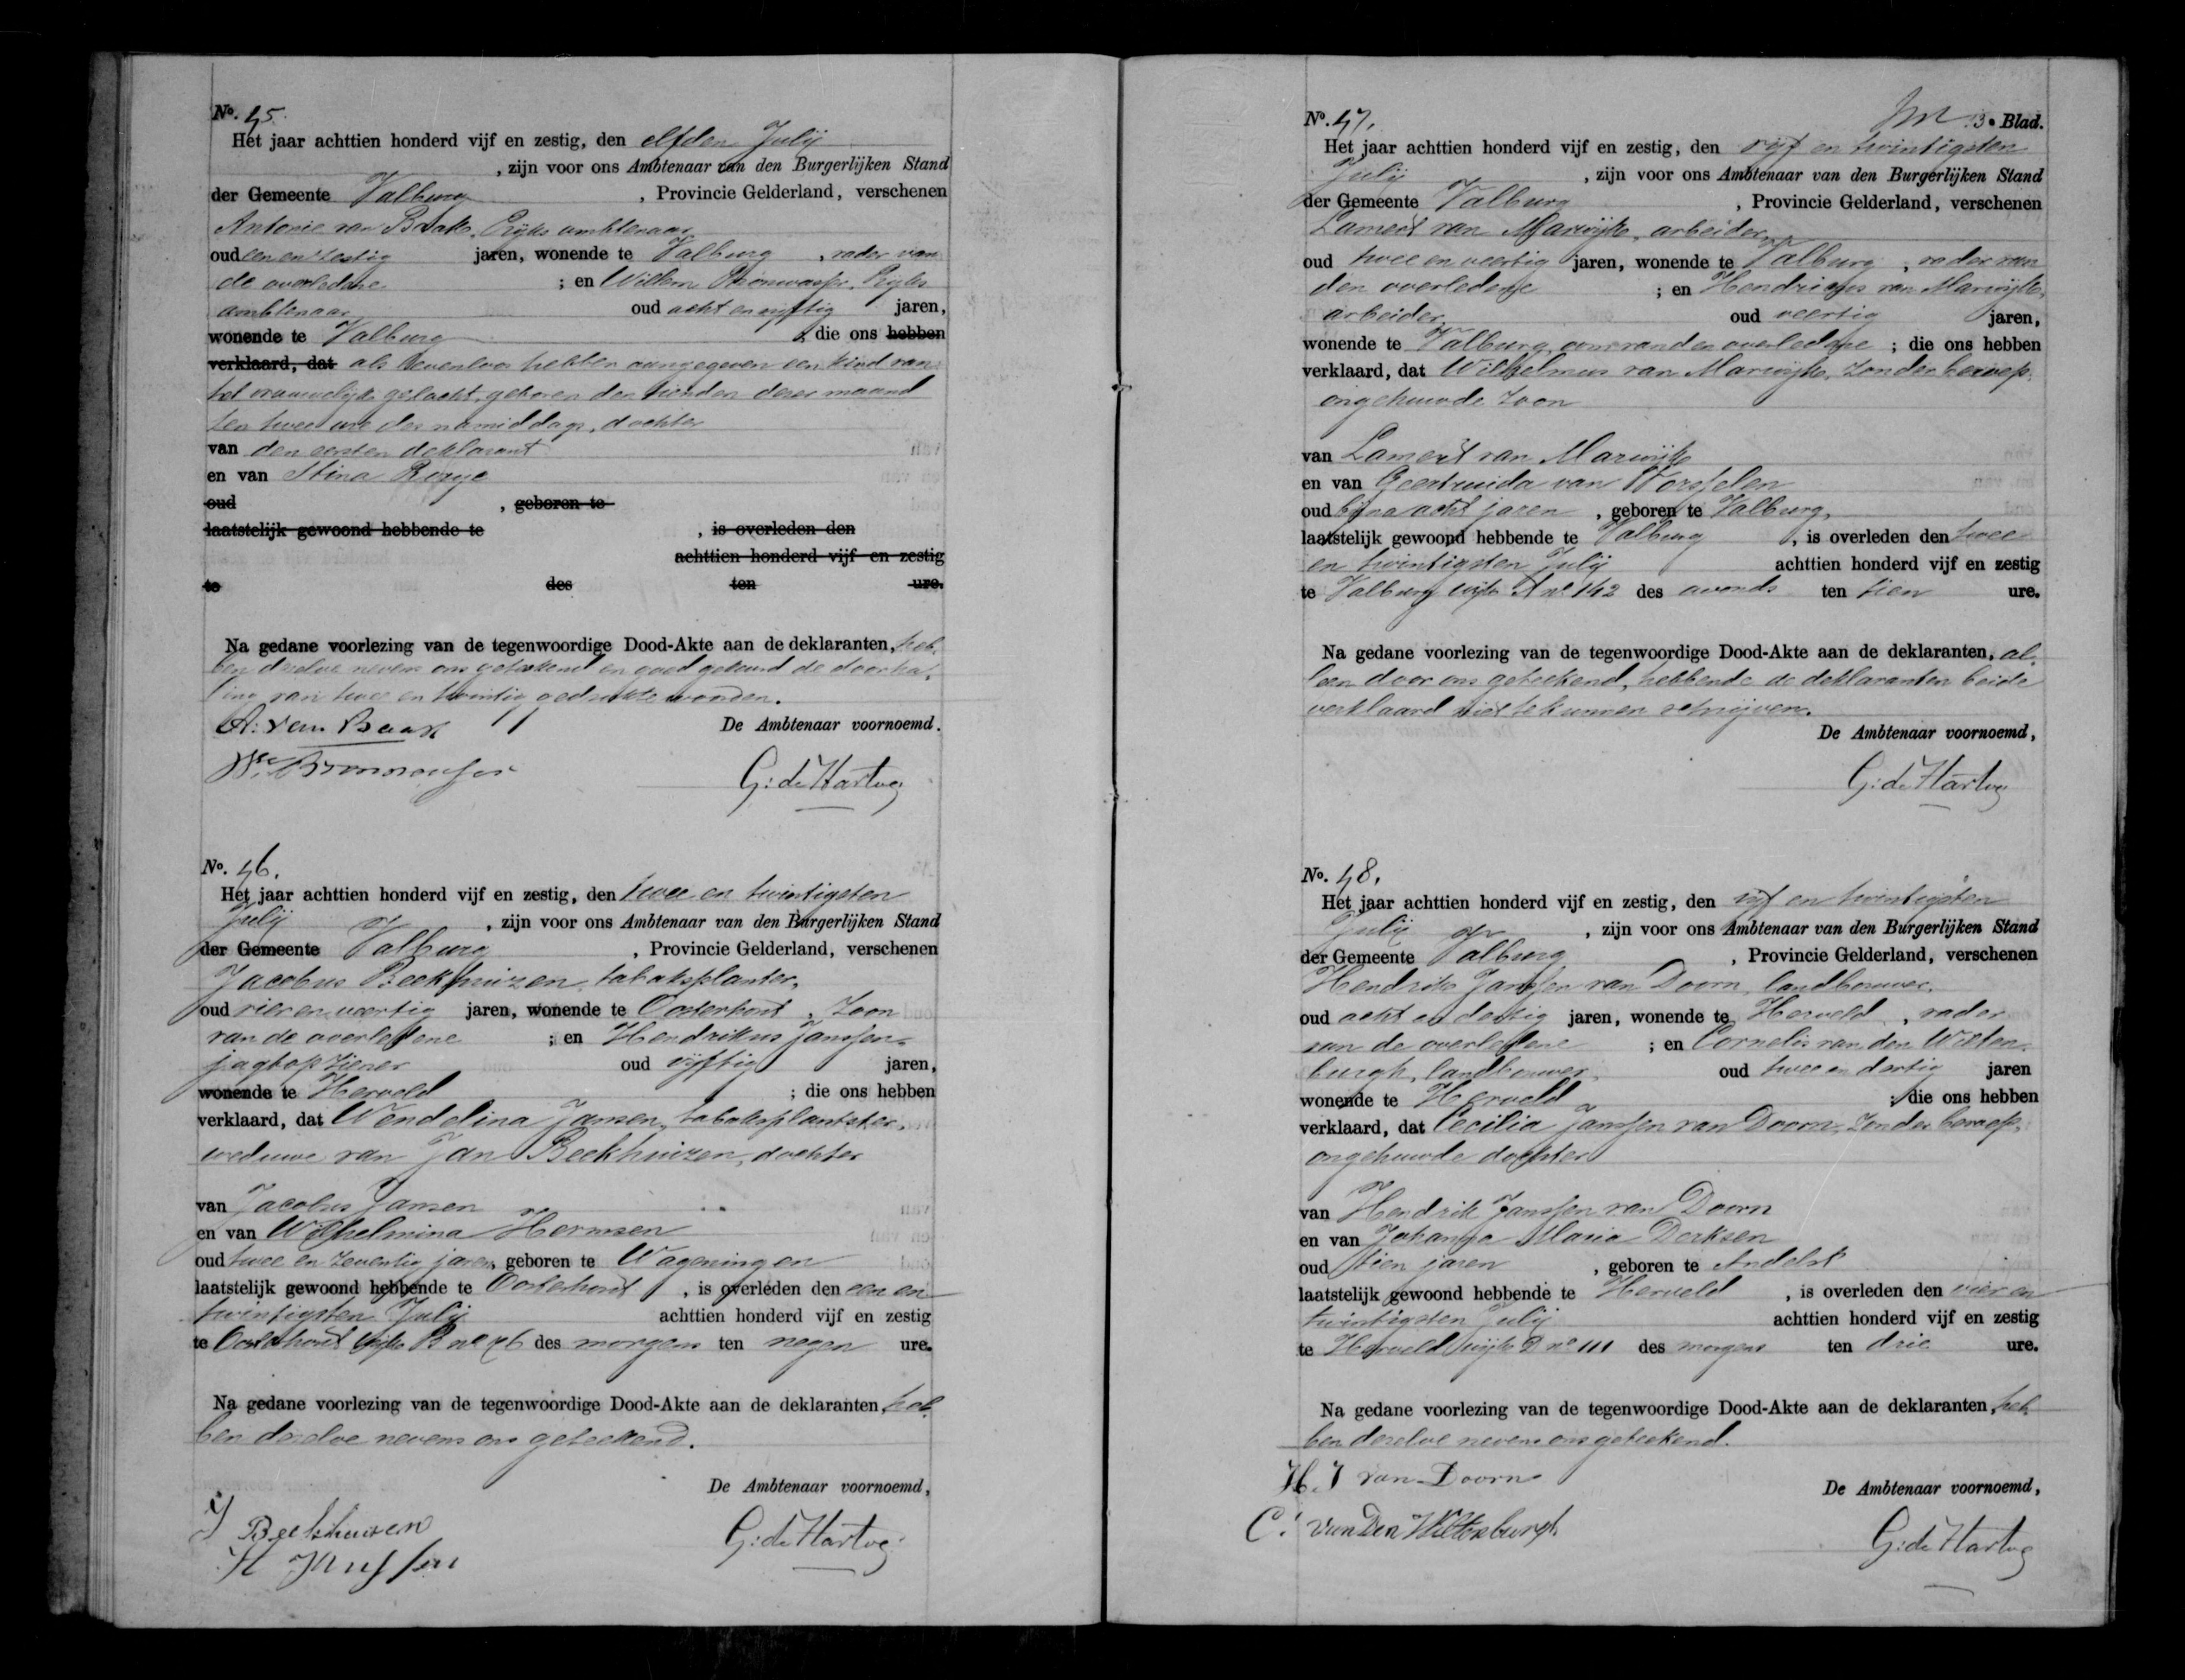 No. 45.
Het jaar achttien honderd vijf en zestig, den elfden Julij
, zijn voor ons Ambtenaar van den Burgerlijken Stand
der Gemeente Valburg, Provincie Gelderland, verschenen
Antonie van Baak, Rijks ambtenaar
oud een en zestig jaren, wonende te Valburg, vader van
de overledene; en Willem Rijks
ambtenaar oud acht en vijftig jaren,
wonende te Valburg; die ons hebben
verklaard, dat als levenloos hebben aangegeven een kind van
het vrouwelijk geslacht, geboren den tienden dezer maand
ten twee ure des namiddags, dochter
van den eersten deklarant
en van Stina
oud , geboren te
laatstelijk gewoond hebbende te , is overleden den
achttien honderd vijf en zestig
te des ten ure.
Na gedane voorlezing van de tegenwoordige Dood-Akte aan de deklaranten, heb-
ben dezelve nevens ons geteekend en goed gekeurd de doorha-
ling van twee en twintig gedrukte woorden.
A. van Baak De Ambtenaar voornoemd.
G: de Hartog
No. 46.
Het jaar achttien honderd vijf en zestig, den twee en twintigsten
Julij, zijn voor ons Ambtenaar van den Burgerlijken Stand
der Gemeente Valburg, Provincie Gelderland, verschenen
Jacobus Beekhuizen, tabaksplanter,
oud vier en veertig jaren, wonende te Oosterhout, Zoon
van de overledene; en Hendrikus Janssen,
jagtopziener oud vijftig jaren,
wonende te Herveld; die ons hebben
verklaard, dat Wendelina Jansen, tabaksplantster,
weduwe van Jan Beekhuizen, dochter
van Jacobus Jansen
en van Wilhelmina Hermsen
oud twee en zeventig jaren, geboren te Wageningen
laatstelijk gewoond hebbende te Oosterhout, is overleden den een en
twintigsten Julij achttien honderd vijf en zestig
te Oosterhout wijk B no 76 des morgens ten negen ure.
Na gedane voorlezing van de tegenwoordige Dood-Akte aan de deklaranten, heb-
ben dezelve nevens ons geteekend.
De Ambtenaar voornoemd,
J Beekhuizen
H Janssen
G: de Hartog
13e Blad.
No. 47.
Het jaar achttien honderd vijf en zestig, den vijf en twintigsten
Julij, zijn voor ons Ambtenaar van den Burgerlijken Stand
der Gemeente Valburg, Provincie Gelderland, verschenen
Lamert van Marwijk, arbeider,
oud twee en veertig jaren, wonende te Valburg, vader van
den overledene; en Hendrikus van Marwijk,
arbeider, oud veertig jaren,
wonende te Valburg, oom van den overledene; die ons hebben
verklaard, dat Wilhelmus van Marwijk, zonder beroep,
ongehuwde Zoon
van Lamert van Marwijk
en van Geertruida van Worsselen
oud bijna acht jaren, geboren te Valburg,
laatstelijk gewoond hebbende te Valburg, is overleden den twee
en twintigsten Julij achttien honderd vijf en zestig
te Valburg wijk A no 142 des avonds ten tien ure.
Na gedane voorlezing van de tegenwoordige Dood-Akte aan de deklaranten, al-
leen door ons geteekend, hebbende de deklaranten beide
verklaard niet te kunnen schrijven.
De Ambtenaar voornoemd,
G: de Hartog
No. 48.
Het jaar achttien honderd vijf en zestig, den vijf en twintigsten
Julij, zijn voor ons Ambtenaar van den Burgerlijken Stand
der Gemeente Valburg, Provincie Gelderland, verschenen
Hendrik Janssen van Doorn, landbouwer,
oud acht en dertig jaren, wonende te Herveld, vader
van de overledene; en Cornelis van den Wilten-
burgh, landbouwer, oud twee en dertig jaren
wonende te Herveld; die ons hebben
verklaard, dat Cecilia Janssen van Doorn, zonder beroep,
ongehuwde dochter
van Hendrik Janssen van Doorn
en van Johanna Maria Derksen
oud tien jaren, geboren te Andelst
laatstelijk gewoond hebbende te Herveld, is overleden den vier en
twintigsten Julij achttien honderd vijf en zestig
te Herveld wijk D no 111 des morgens ten drie ure.
Na gedane voorlezing van de tegenwoordige Dood-Akte aan de deklaranten, heb-
ben dezelve nevens ons geteekend.
H. J van Doorn
De Ambtenaar voornoemd,
C. van Den Wiltenburgh
G: de Hartog